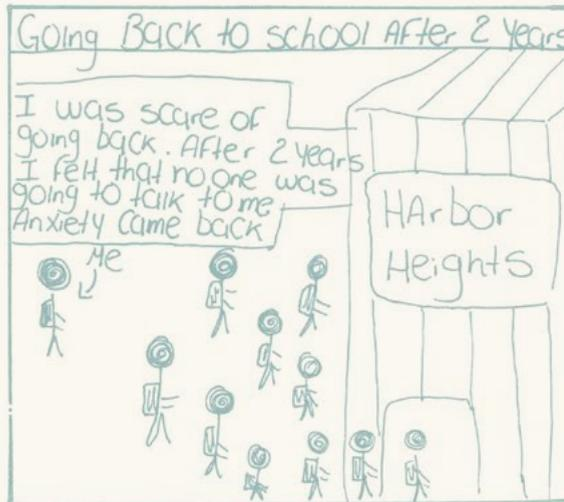 Going Back to school After 2 Years
I was scare of
going back. After 2 years
I felt that no one was
going to talk to me
Anxiety came back
Me
HArbor
HeigHts